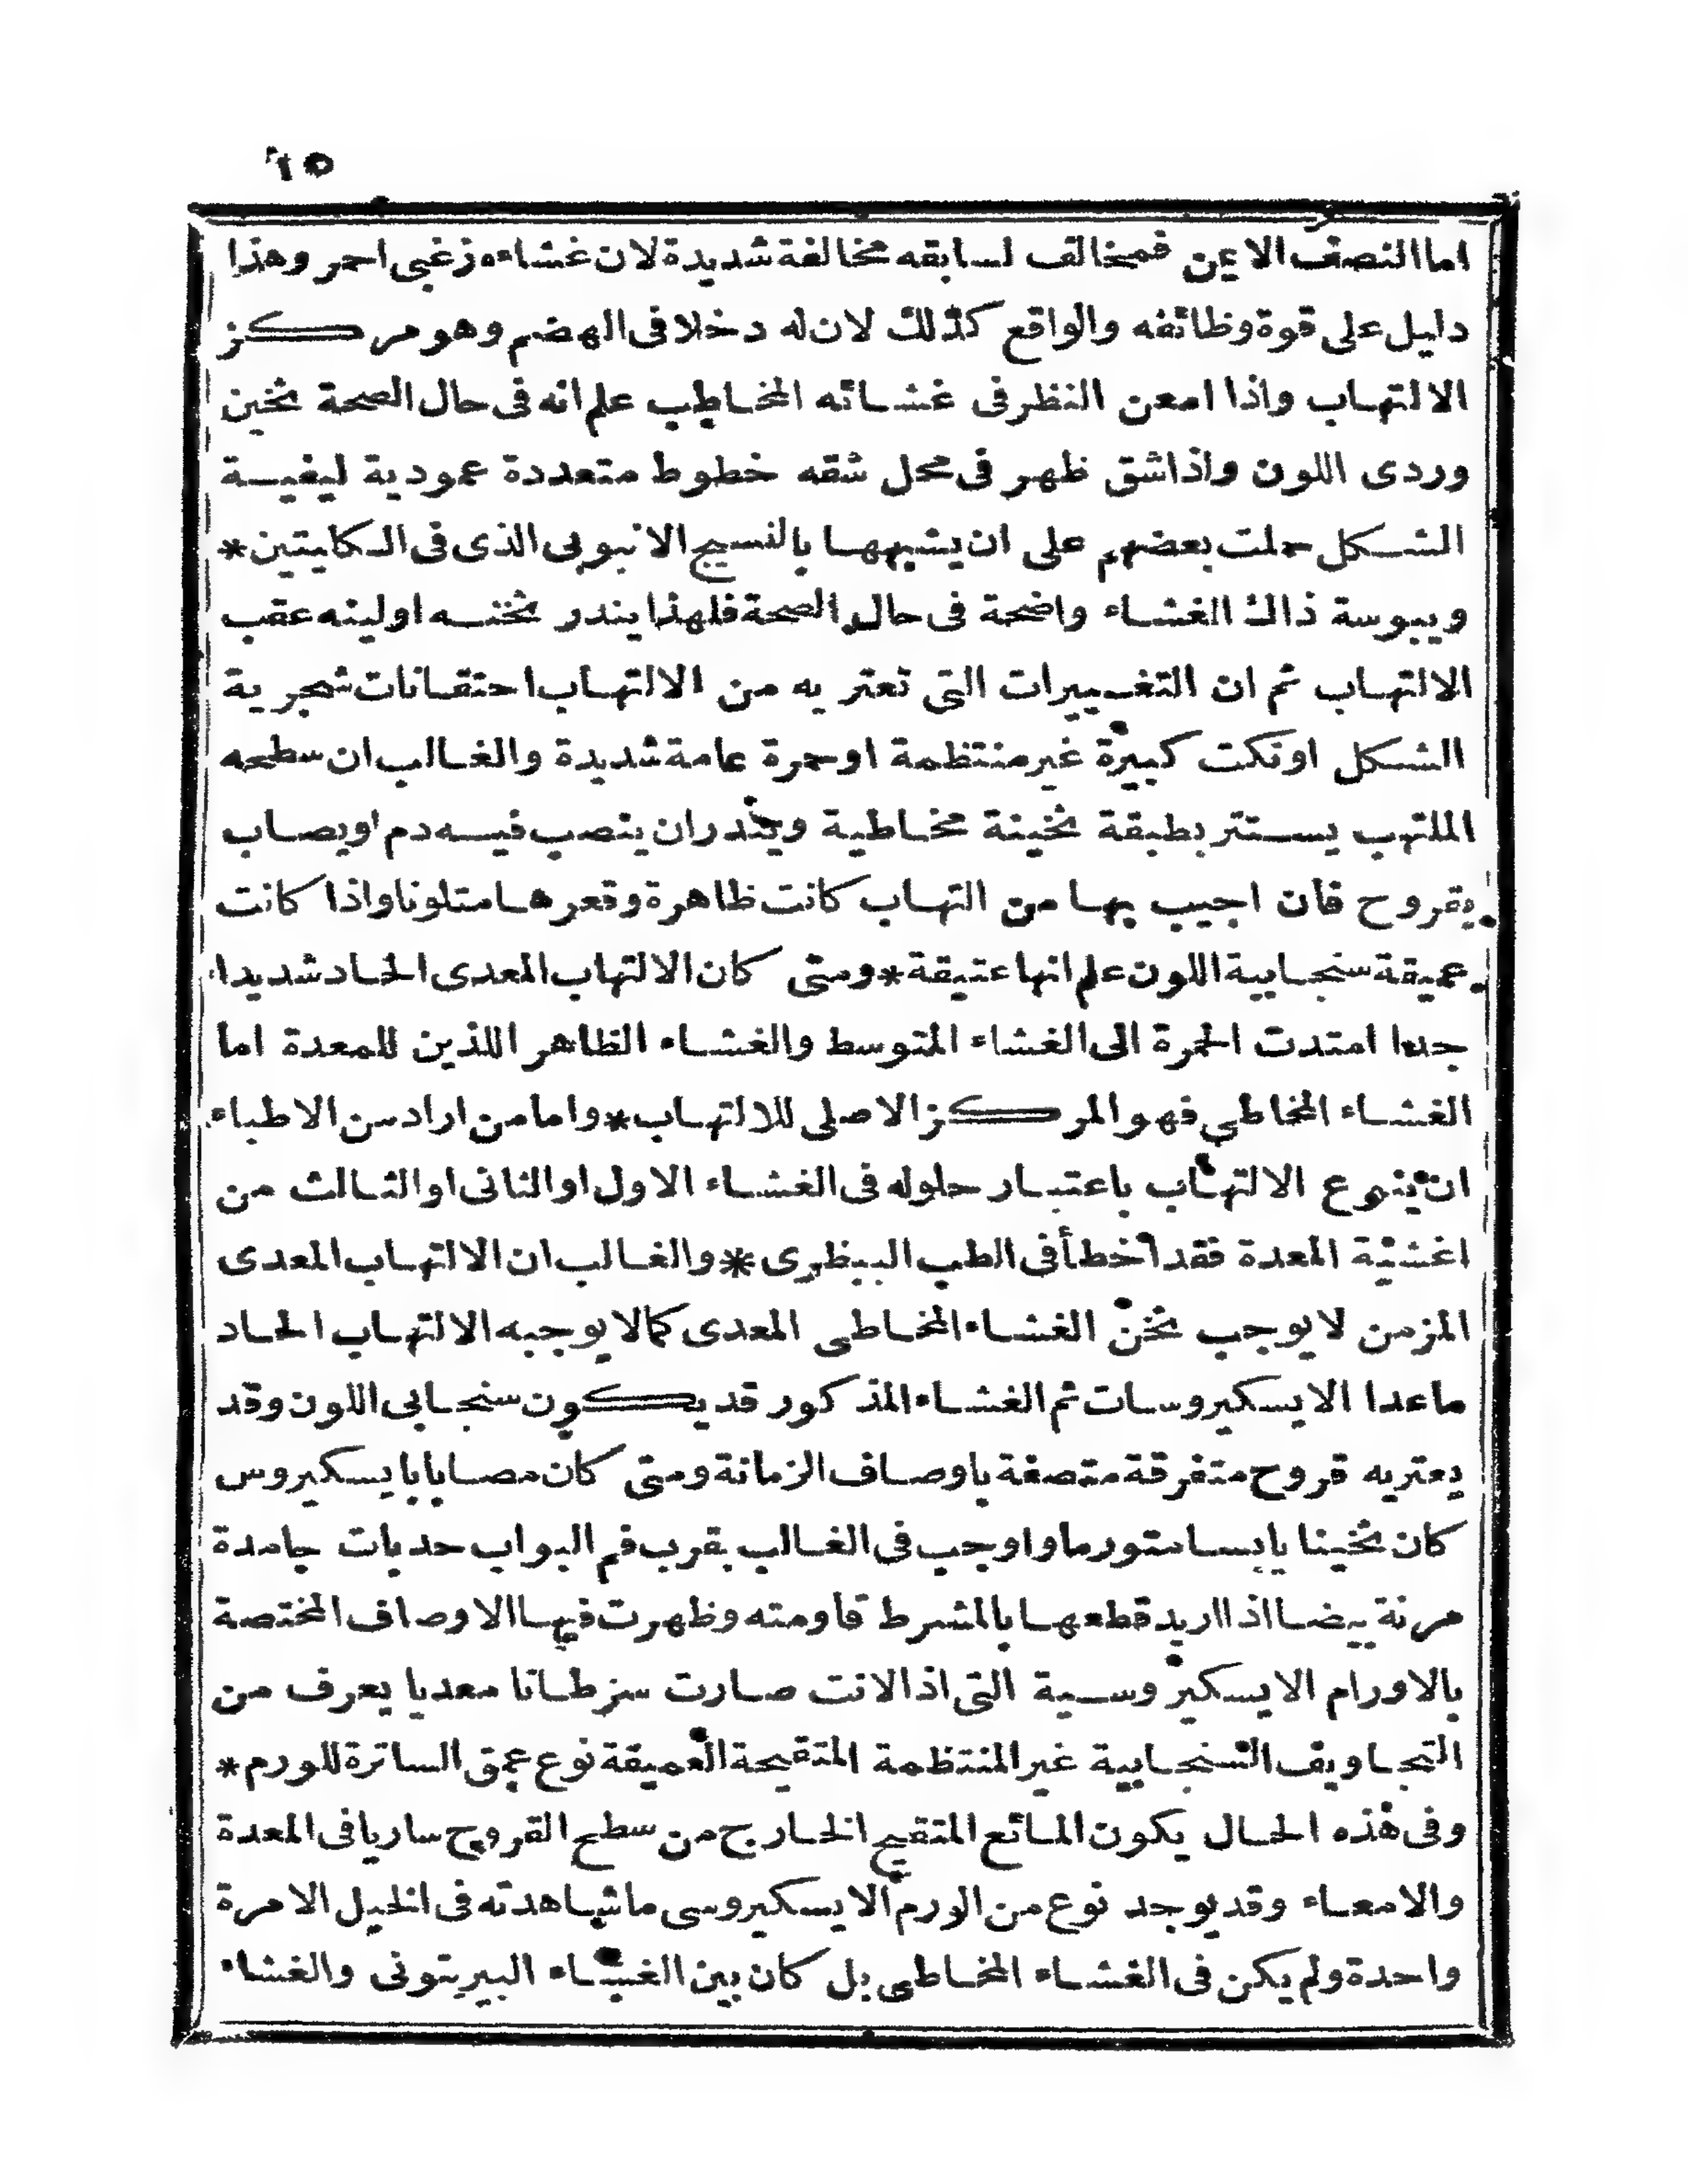 ٦٥
اما النصف الايمن فمخالف لسابقه مخالفة شديدة لان غشاءه زغبى احمر وهذا
دليل على قوة وظائفه والواقع كذلك لان له دخلا فى الهضم وهو مركز
الالتهاب واذا امعن النظر فى غشائه المخاطيب علم انه فى حال الصحة ثخين
وردى اللون واذا شق ظهر فى محل شقه خطوط متعددة عمودية ليفية
الشكل حملت بعضهم على ان يشبهها بالنسيج الانبوبى الذى فى الكليتين *
ويبوسة ذاك الغشاء واضحة فى حال الصحة فلهذا يندر ثخنه او لينه عقب
الالتهاب ثم ان التغييرات التى تعتريه من الالتهاب احتقانات شجرية
الشكل او نكت كبيرة غير منتظمة او حمرة عامة شديدة والغالب ان سطحه
الملتهب يستتر بطبقة ثخينة مخاطية ويندر ان ينصب فيه دم او يصاب
بقروح فان اجيب بها من التهاب كانت ظاهرة وقعرها متلونا واذا كانت
عميقة سنجابية اللون علم انها عتيقة * ومتى كان الالتهاب المعدى الحاد شديدا
جدا امتدت الحمرة الى الغشاء المتوسط والغشاء الظاهر اللذين للمعدة اما
الغشاء المخاطي فهو المركز الاصلى للالتهاب * واما من اراد من الاطباء
ان ينوع الالتهاب باعتبار حلوله فى الغشاء الاول او الثانى او الثالث من
اغشية المعدة فقد اخطأ فى الطب البيظرى * والغالب ان الالتهاب المعدى
المزمن لا يوجب ثخن الغشاء المخاطى المعدى كما لا يوجبه الالتهاب الحاد
ماعدا الايسكيروسات ثم الغشاء المذكور قد يكون سنجابى اللون وقد
يعتريه قروح متفرقة متصفة باوصاف الزمانة ومتى كان مصابا بايسكيروس
كان ثخينا يابسا متورما واوجب فى الغالب بقرب فم البواب حدبات جامدة
مرنة بيضا اذا اريد قطعها بالمشرط قاومته وظهرت فيها الاوصاف المختصة
بالاورام الايسكيروسية التى اذا لانت صارت سرطانا معديا يعرف من
التجاويف السنجابية غير المنتظمة المتقيحة العميقة نوع عمق الساترة للورم *
وفى هذه الحال يكون المائع المتقيح الخارج من سطح القروح ساريا فى المعدة
والامعاء وقد يوجد نوع من الورم الايسكيروسى ما شاهدته فى الخيل الا مرة
واحدة ولم يكن فى الغشاء المخاطى بل كان بين الغشاء البيريتونى والغشاء